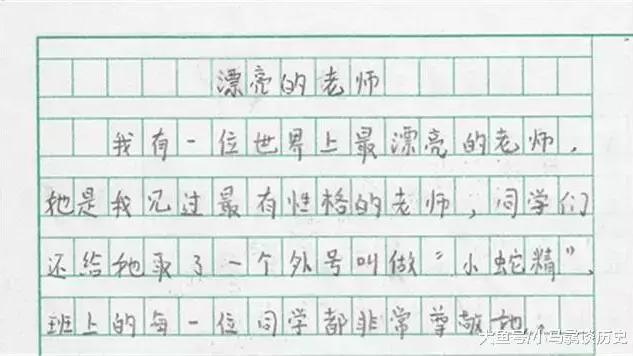 漂亮的老师
我有一位世界上最漂亮的老师.
她是我见过最有性格的老师,同学们
还给她取了一个外号叫做"小蛇精".
班上的每一位同学都非常尊敬她.
大鱼号/小马哥谈历史